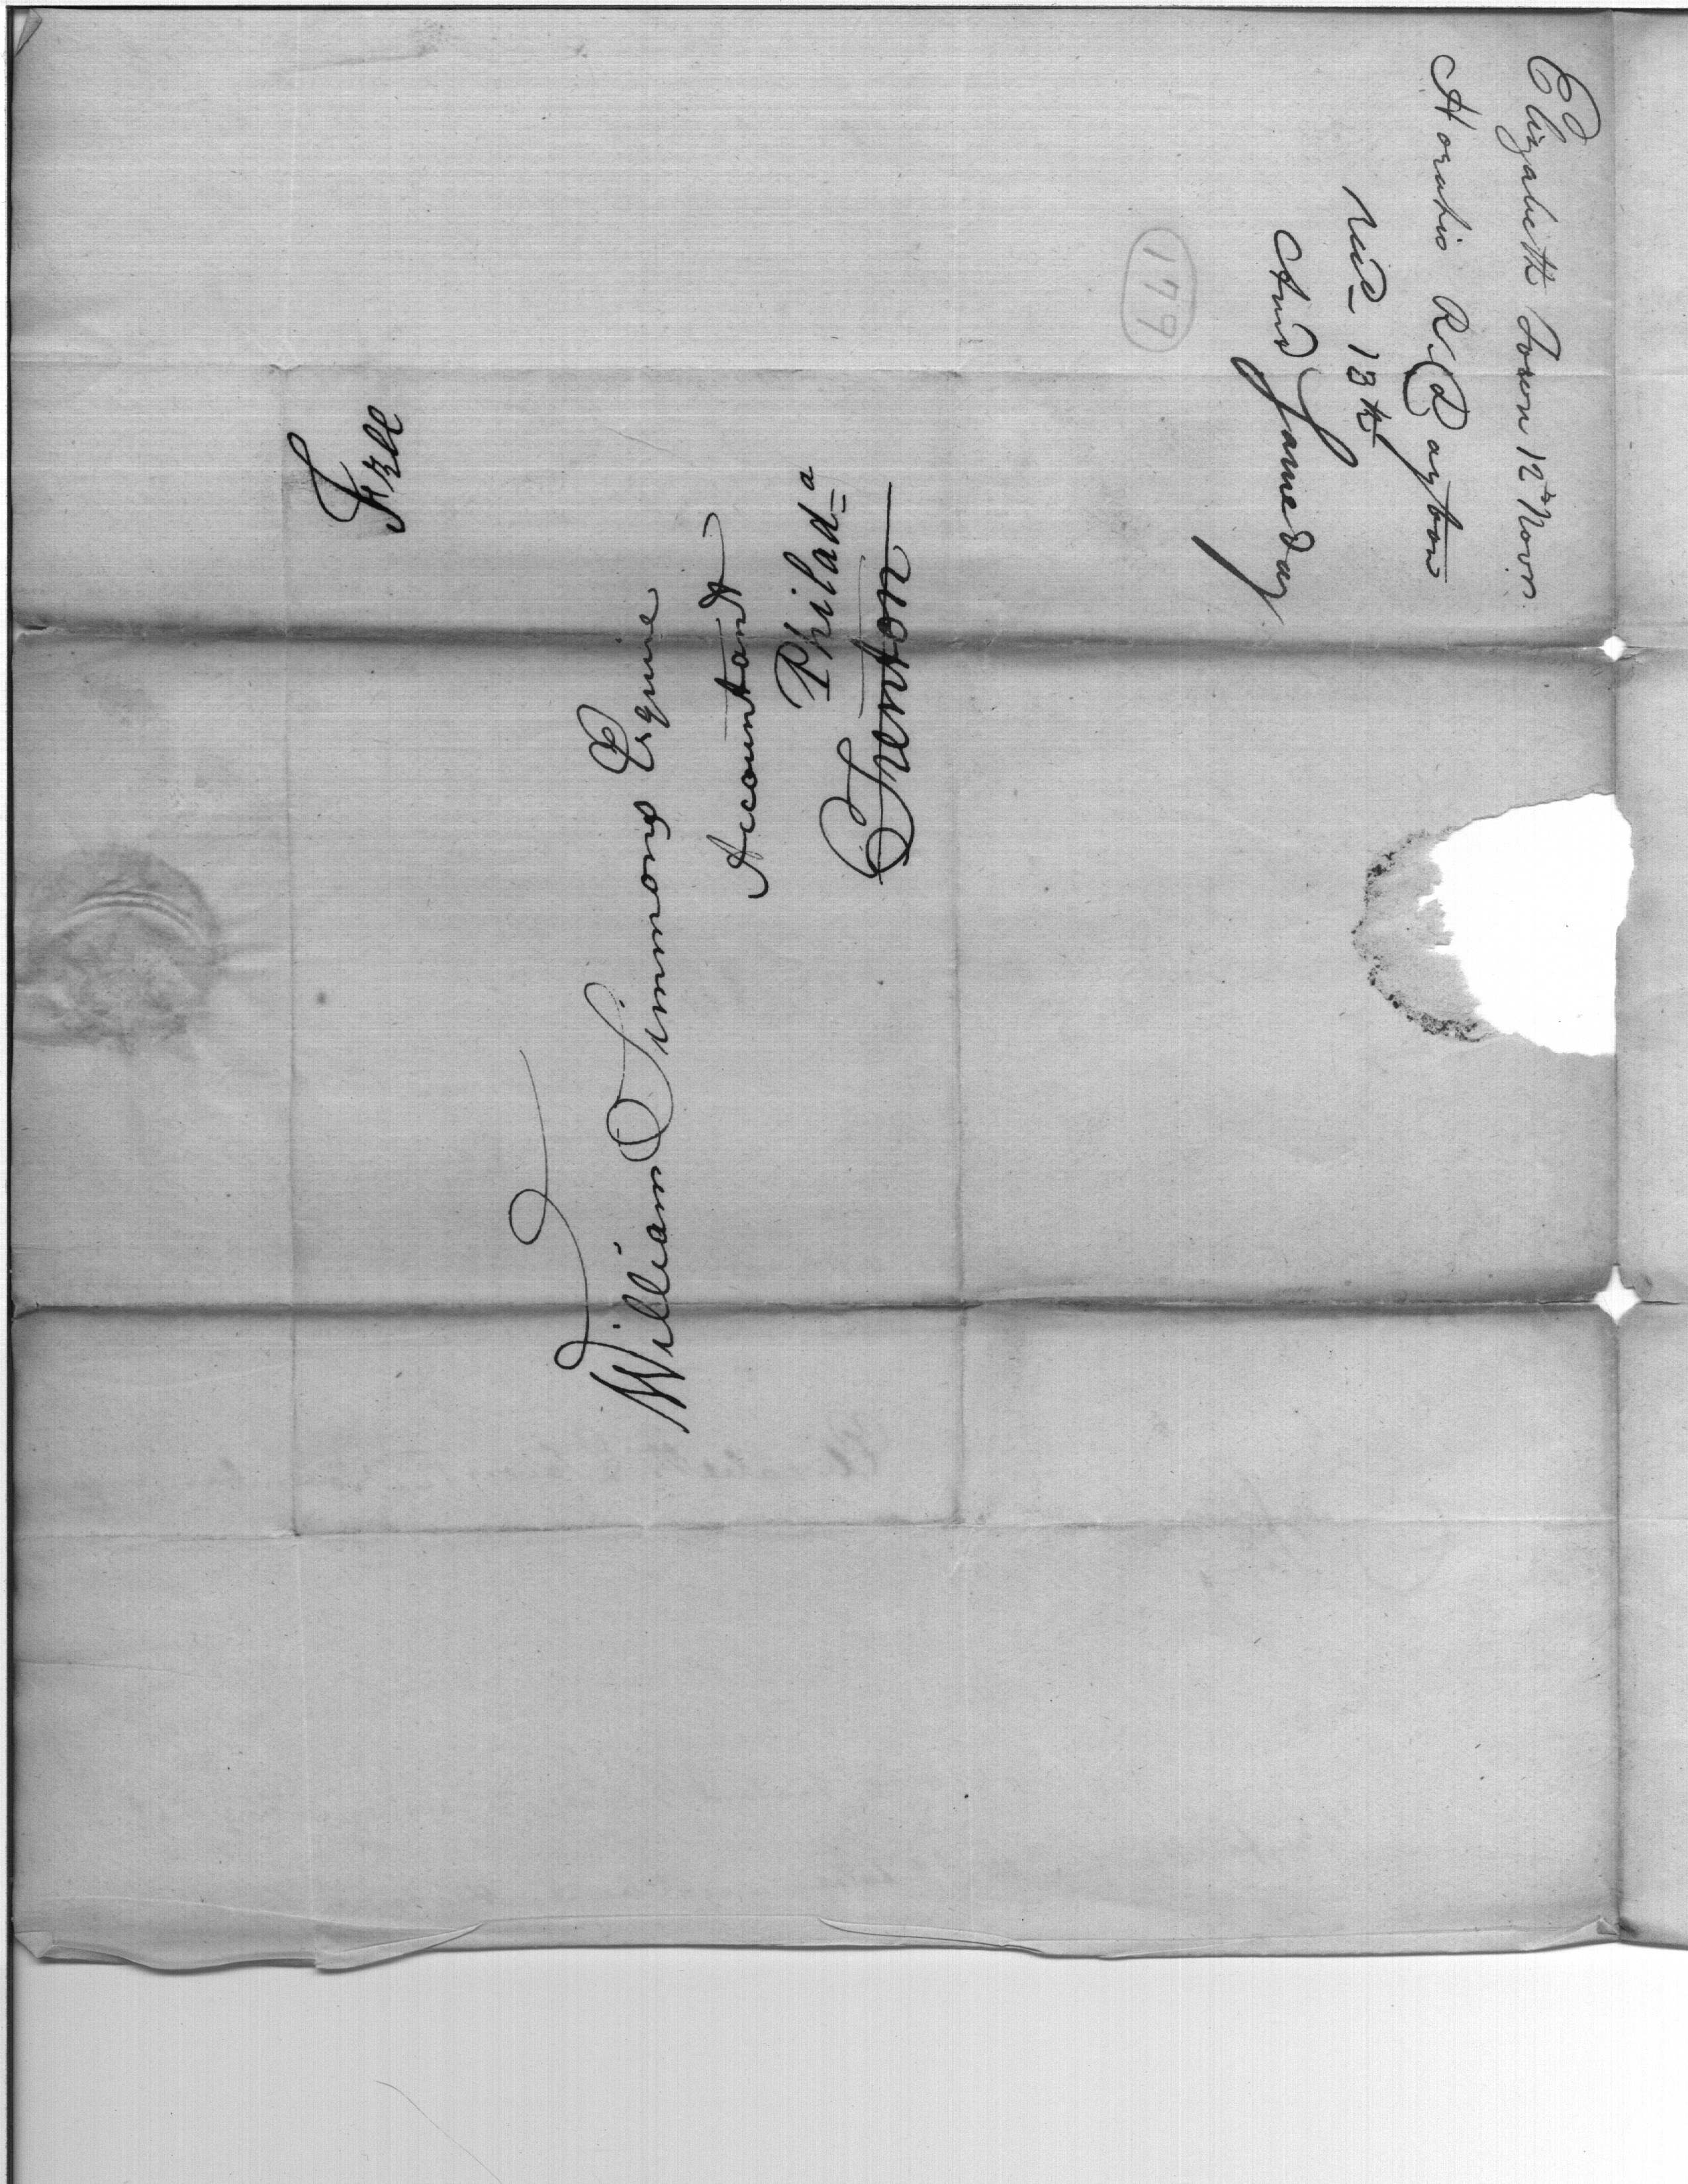 Elizabeth Town 12th Novr.
Horatio R Dayton
recd 13th
And same day
1799
Free
William Simmons Esquire
Accountant
Philada
Trenton